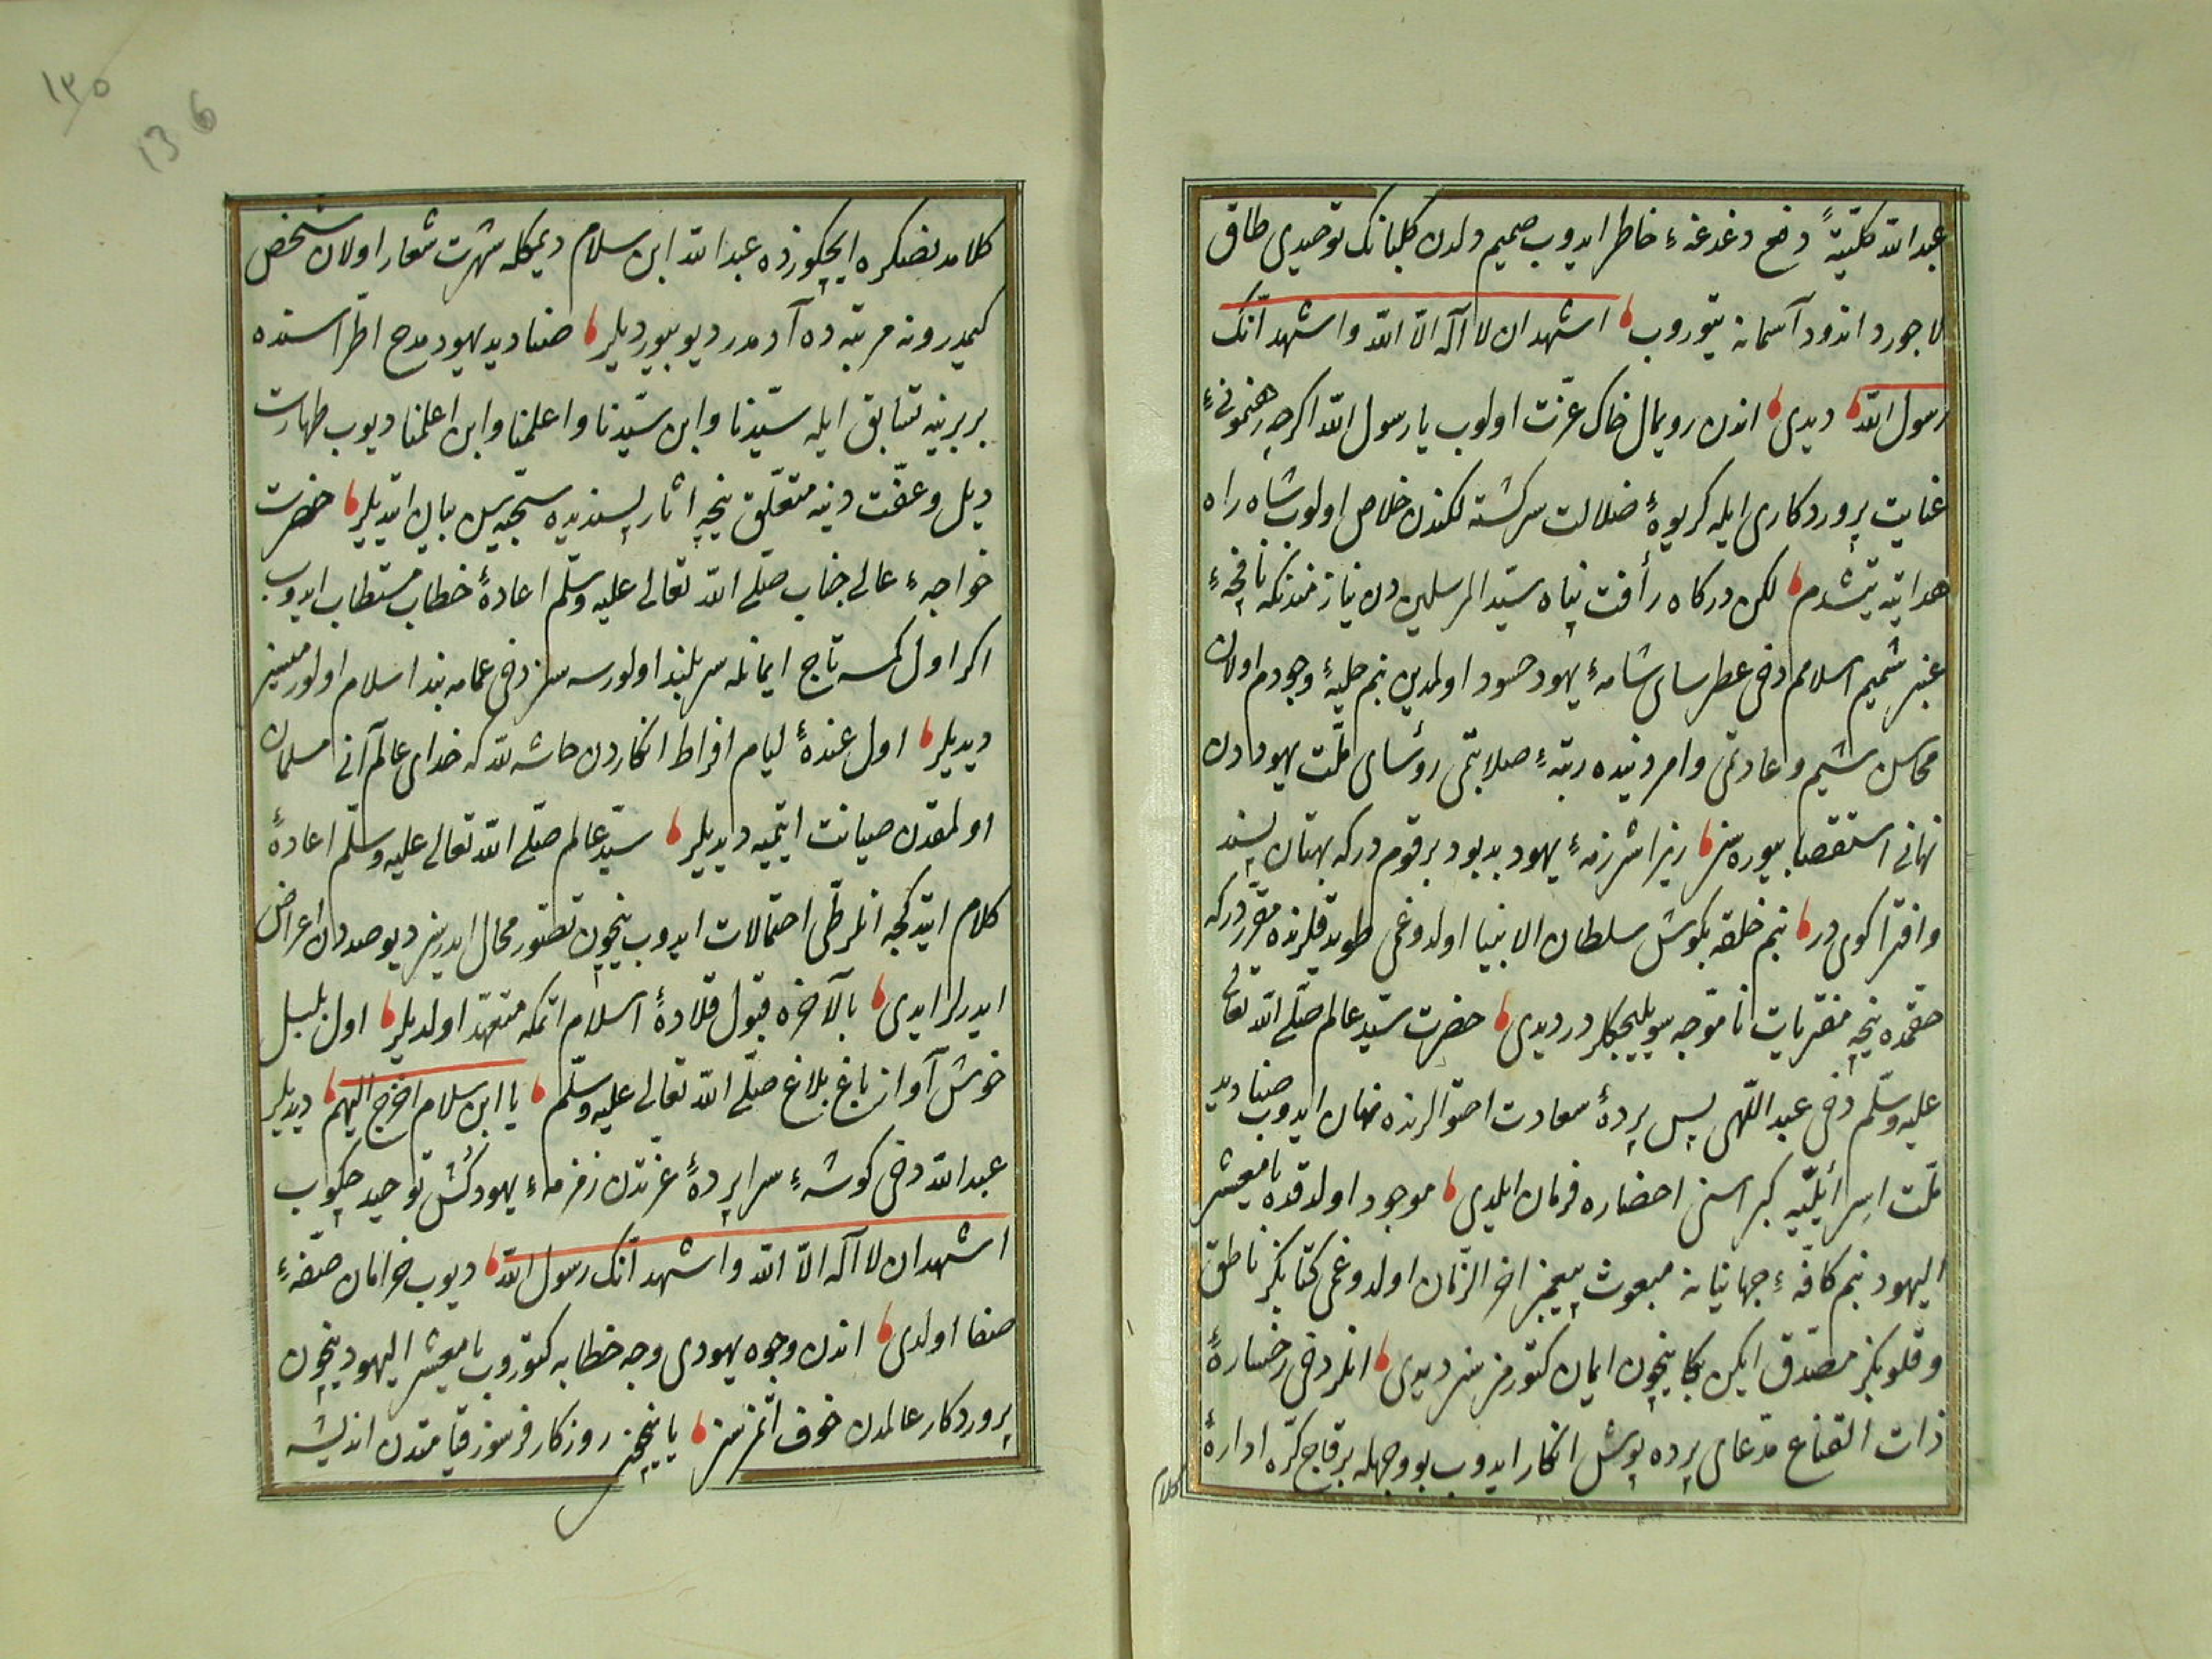 عبدالله كلّيّةً دفع دغدغهٔ خاطر ايدوب صميم دلدن كلبانك توحيدى طاق
لاجورد اندود آسمانه يتوروب اشهد ان لا اله الّا الله واشهد انّك
رسول الله ديدى اندن رويمال خاك عزّت اولوب يا رسول الله اكرچه رهنمونىٔ
عنايت پروردكارى ايله كريوهٔ ضلالت سركشته لكندن خلاص اولوب شاه راه
هدايته يتشدم لكن دركاه رأفت پناه سيّد المرسلين دن نيازمندمكه نافجهٔ
عنبر شميم اسلامم دخى عطرساى شامهٔ يهود حسود اولمدين بنم حليهٔ وجودم اولان
محاسن شيم وعادتمى وامر دينده رتبهٔ صلابتمى رؤساى ملّت يهوددن
نهانى استقصا بيوره سز زيرا شرزمهٔ يهود بدبود بر قوم دركه بهتان پسند
وافترا كوى در بنم حلقه بكوش سلطان الانبيا اولدوغمى طويدقلرنده مقرّردركه
حقمده نيچه مفتريات ناموجه سويليجكلر در ديدى حضرت سيّد عالم صلّى الله تعالى
عليه وسلّم دخى عبداللهى پس پردهٔ سعادت احتوالرنده نهان ايدوب صناديد
ملّت اسرائيليّه كبراسنى احضاره فرمان ايلدى موجود اولدقده يا معشر
اليهود بنم كافّهٔ جهانيانه مبعوث پيغمبر اخر الزّمان اولدوغمى كتابكز ناطق
وقلوبكز مصدّق ايكن بكا نيچون ايمان كتورمزسز ديدى انلر دخى رخسارهٔ
ذات القناع مدّعاى پرده پوش انكار ايدوب بو وجهله بر قاچ كرّه ادارهٔ
كلام
١٣٥
136
كلامدنصكره ايچكوزده عبدالله ابن سلام ديمكله شهرت شعار اولان شخص
كيمدر ونه مرتبه ده آدمدر ديو بيورديلر صناديد يهود مدح اطراسنده
بربرينه تسابق ايله سيّدنا وابن سيّدنا واعلمنا وابن اعلمنا ديوب طهارت
ذيل وعفّت دينه متعلّق نيچه اثار پسنديده سجيّه سن بيان ايتديلر حضرت
خواجهٔ عالى جناب صلّى الله تعالى عليه وسلّم اعادهٔ خطاب مستطاب ايدوب
اكر اول كمسه تاج ايمانله سربلند اولورسه سز دخى عمامه بند اسلام اولورميسز
ديديلر اول عندهٔ ليام افراط انكاردن حاشه لله كه خداى عالم آنى مسلمان
اولمقدن صيانت ايتميه ديديلر سيّد عالم صلّى الله تعالى عليه وسلّم اعادهٔ
كلام ايتدكجه انلر طىّ احتمالات ايدوب نيچون تصوّر محال ايدرسز ديو صددن اعراض
ايدرلر ايدى بالآخره قبول قلادهٔ اسلام اتمكه متعهّد اولديلر اول بلبل
خوش آواز باغ بلاغ صلّى الله تعالى عليه وسلّم يا ابن سلام اخرج اليهم ديديلر
عبدالله دخى كوشهٔ سراپردهٔ عزّتدن زمزمهٔ يهودكُش توحيد چكوب
اشهد ان لا اله الّا الله واشهد انّك رسول الله ديوب خرامان صفّهٔ
صفا اولدى اندن وجوه يهودى وجه خطابه كتوروب يا معشر اليهود نيچون
پروردكار عالمدن خوف اتمزسز يا نيچون روزكار فرسوز قيامتدن انديشه